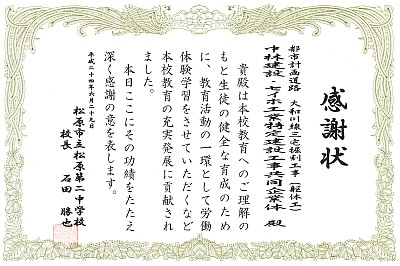 感謝状
都市計画道路 大和川線三宅掘割工事(躯体工)
中林建設・セイホ工業特定建設工事共同企業体 殿
貴殿は本校教育へのご理解の
もと生徒の健全な育成のため
に、教育活動の一環として労働
体験学習をさせていただくなど
本校教育の充実発展に貢献され
ました。
本日ここにその功績をたたえ
深く感謝の意を表します。
平成二十四年六月二十九日
松原市立松原第二中学校
校長 石田 勝也